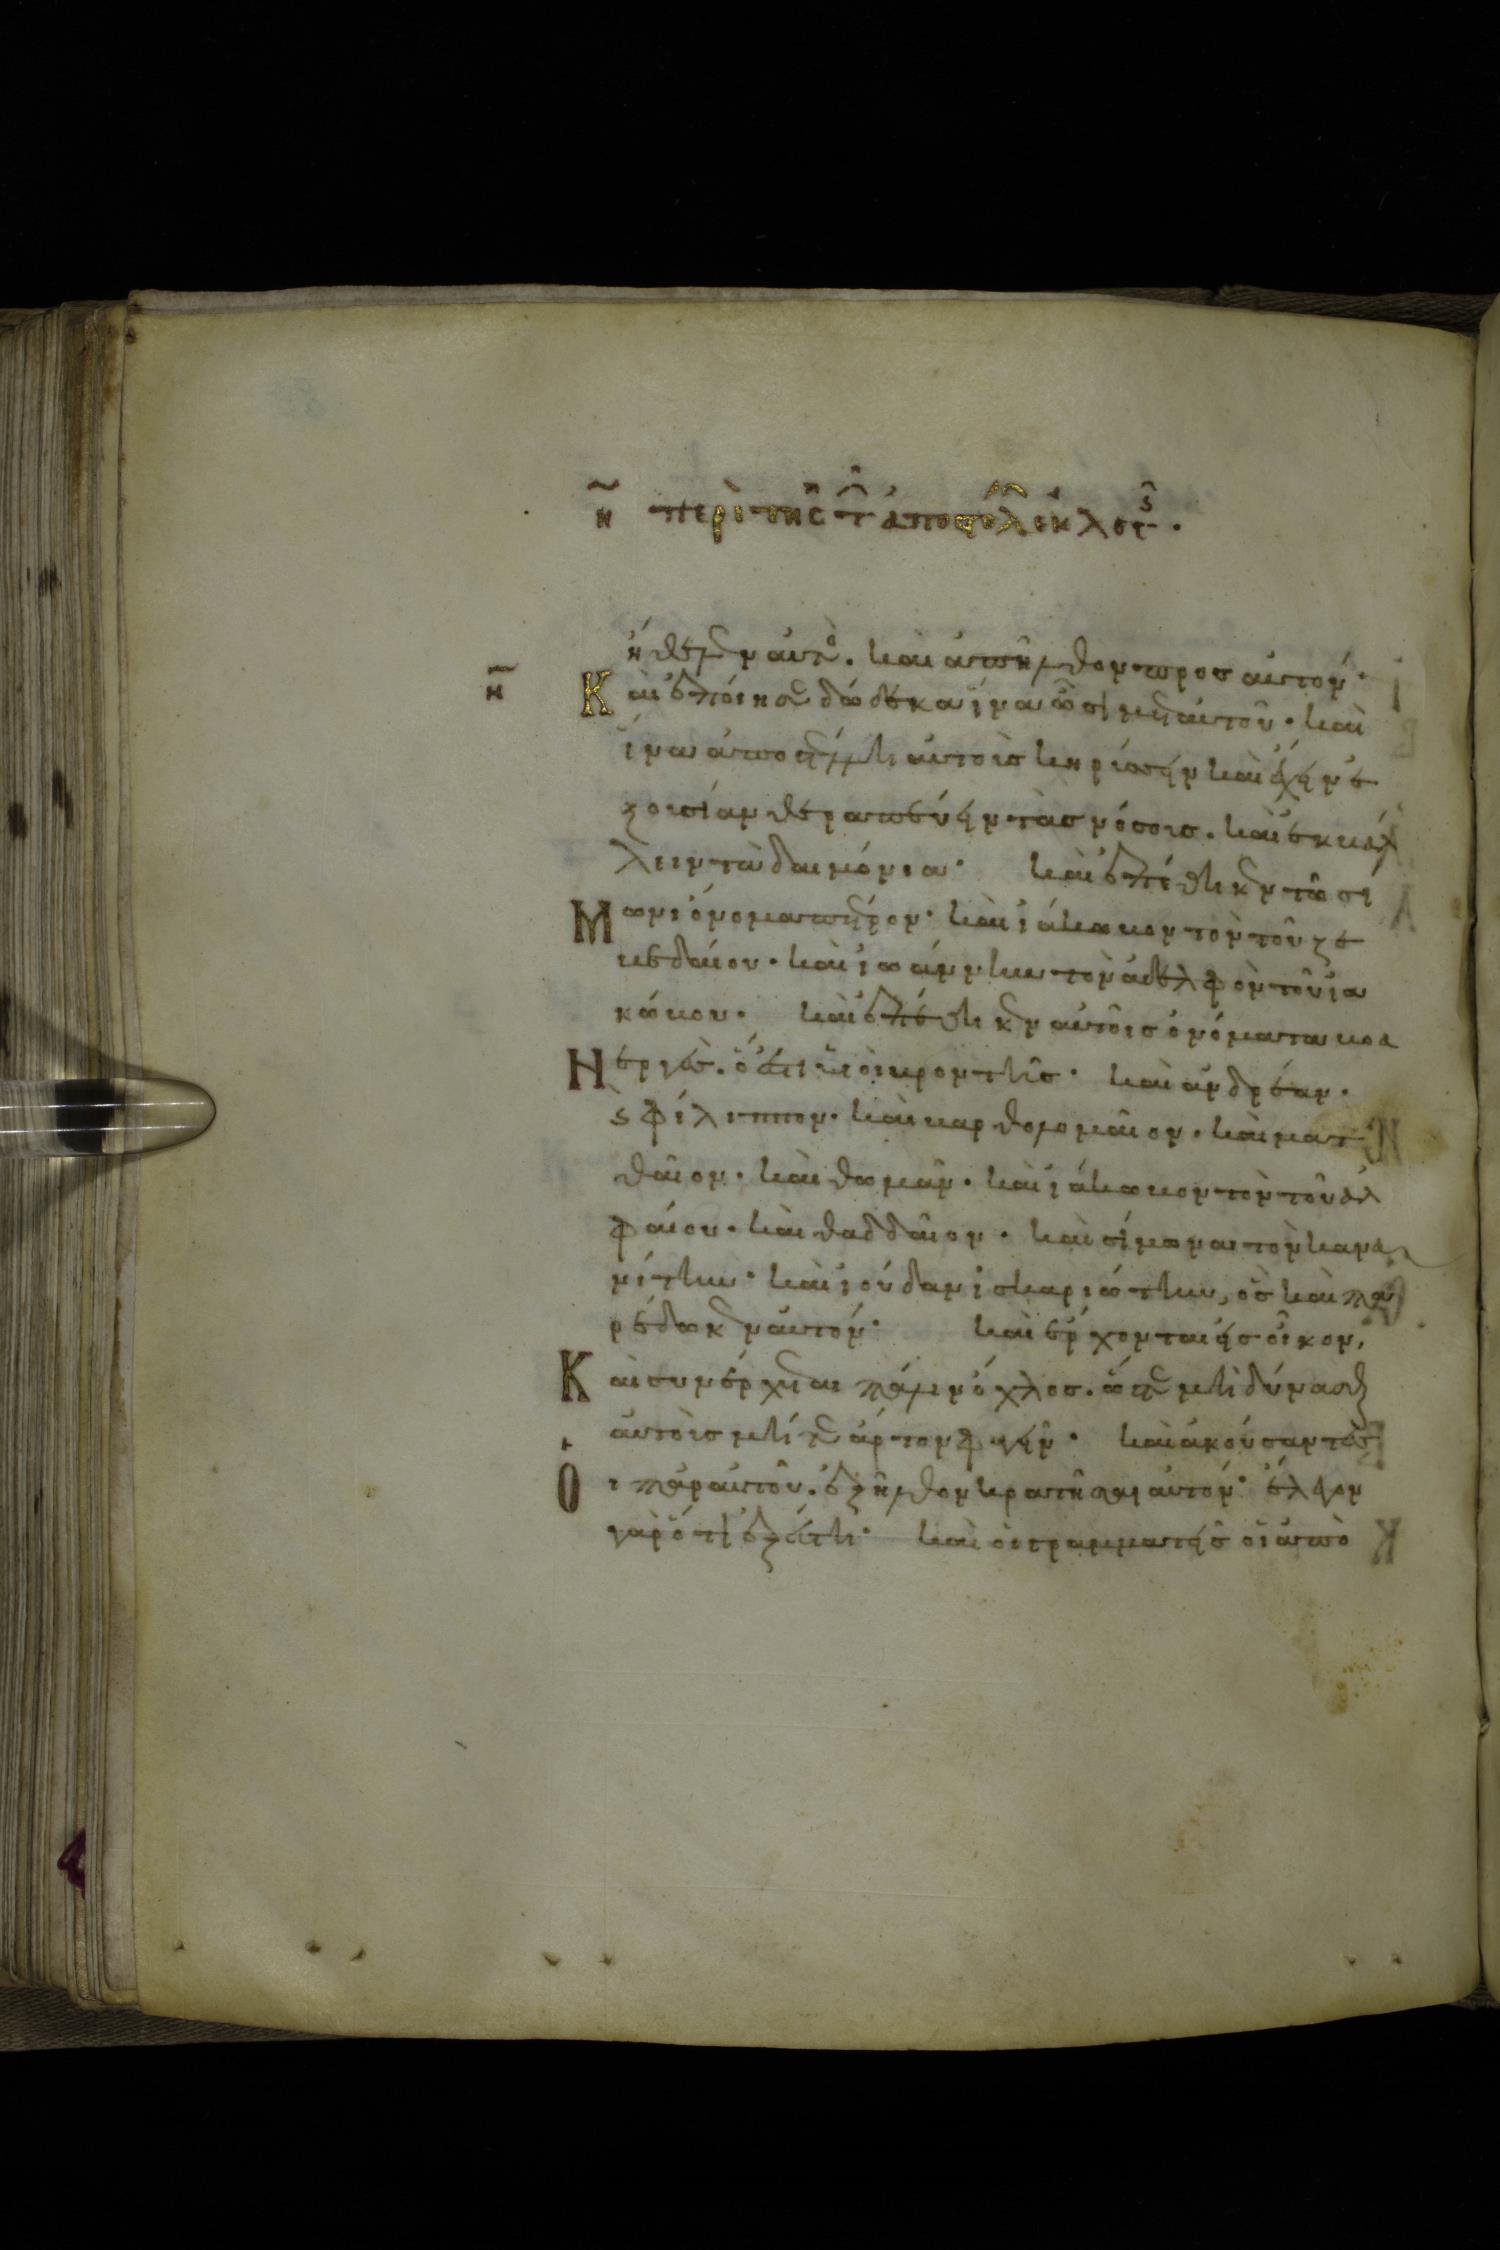 η̃ περὶ τῆς τῶν ἀποστόλων ἐκλογῆς·
ήθελεν αὐτός. καὶ ἀπῆλθον προσ αὐτόν·
η̃ Καὶ ἐποίησε δώδεκα ἵνα ὦσι μετ αὐτοῦ· καὶ
ἵνα ἀποστέλλη αὐτοὺσ κηρύσσειν καὶ ἔχειν ἐ
ξουσίαν θεραπεύειν τὰσ νόσουσ. καὶ ἐκβάλ
λειν τὰ δαιμόνια· καὶ ἐπέθηκεν τῶ σι
Μωνι ὄνομα πέτρον· καὶ ἰάκωβον τὸν τοῦ ζε
βεδαίου· καὶ ἰωάννην τὸν ἀδελφὸν τοῦ ἰα
κώβου· καὶ ἐπέθηκεν αὐτοῖσ ὀνόματα βοα
Νεργὲσ. ὅ ἐστιν υἱοὶ βροντῆς· καὶ ἀνδρέαν·
ϛ φίλιππον· καὶ βαρθολομαῖον· καὶ ματ
θαῖον· καὶ θωμᾶν· καὶ ἰάκωβον τὸν τοῦ ἀλ
φαίου· καὶ θαδδαῖον· καὶ σίμωνα τὸν κανα
νίτην· καὶ ἰούδαν ἰσκαριώτην, ὃσ καὶ πα
ρέδωκεν αὐτόν· καὶ ἔρχονται εἰσ οἶκον,
Καὶ συνέρχεται πάλιν ὄχλοσ. ὥστε μὴ δύνασθαι
αὐτοὺσ μήτε ἄρτον φαγεῖν· καὶ ἀκούσαντεσ
Οἱ παρ αὐτοῦ. ἐξῆλθον κρατῆσαι αὐτόν· ἔλεγον
γὰρ ὅτι ἐξέστη· καὶ οἱ γραμματεῖσ οἱ ἀπὸ